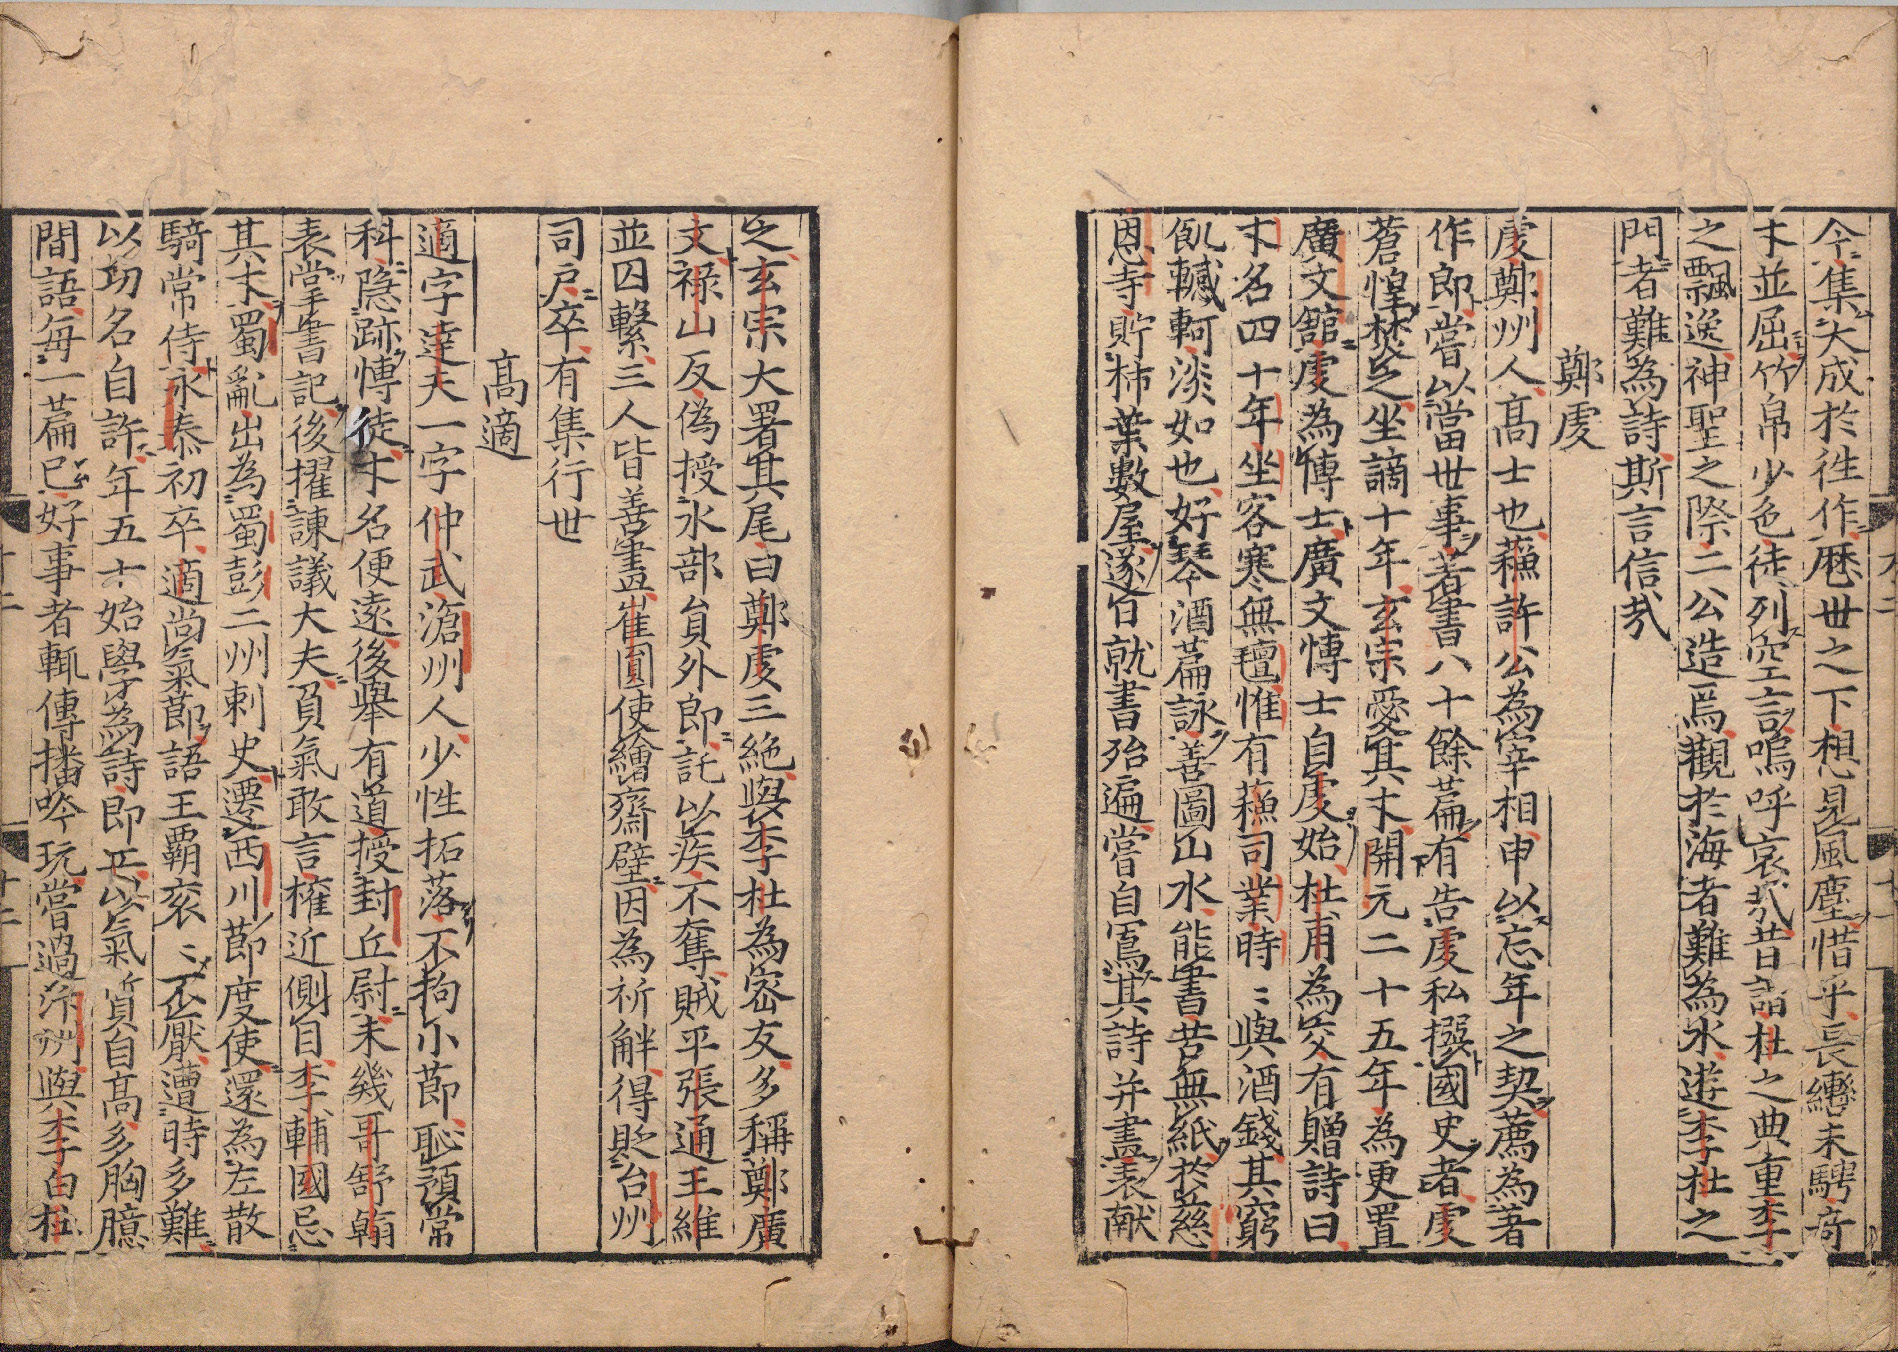 今集大成於徃作厯丗之下想見風塵惜乎長轡未騁竒
才並屈竹帛少色徒列空言嗚呼哀㢤昔謂杜之典重李
之飄逸神聖之際二公造焉觀於海者難為水遊李杜之
門者難為詩斯言信㢤
鄭虔
虔鄭州人髙士也蘓許公為宰相申以忘年之契薦為著
作郎嘗以當世事著書八十餘篇有告虔私撰國史者虔
蒼惶焚之坐謫十年玄宗愛其才開元二十五年為更置
廣文館虔為愽士廣文愽士自虔始杜甫為交有贈詩曰
才名四十年坐客寒無氊惟有蘓司業時〻與酒錢其窮
飢轗軻淡如也好琴酒篇詠善圖山水能書苦無紙於慈
恩寺貯柿葉數屋遂日就書殆遍嘗自冩其詩并畫表献
之玄宗大署其尾曰鄭虔三絶與李杜為宻友多稱鄭廣
文禄山反偽授水部貟外郎託以疾不奪賊平張通王維
並囚繋三人皆善畫崔圓使繪齋壁因為祈觧得貶台州
司戸卒有集行世
髙適
適字達夫一字仲武滄州人少性拓落不拘小莭恥預常
科隠跡愽徒才名便逺後舉有道授封丘尉未幾哥舒翰
表掌書記後擢諫議大夫負氣敢言權近側目李輔國忌
其才蜀亂出為蜀彭二州刺史遷西川莭度使還為左散
騎常侍永泰初卒適尚氣莭語王覇衮〻不厭遭時多難
以功名自許年五十始學為詩即工以氣質自髙多胸臆
間語每一篇已好事者輒傳播吟玩嘗過汴州與李白杜